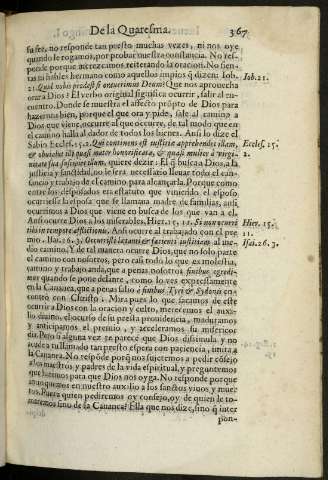 De la Quaresma. 367
su ser, no responde tan presto muchas vezes, ni nos oye
quando le rogamos, por probar nuestra constancia. No res-
ponde porque nos rezcamos reiterando la oracion. No sien-
tas mi hables hermano como aquellos impios q̃ dizen: Iob.
21. Quid nobis prodest si oraverimus Deum? Que nos aprouecha
orar a Dios? El verbo original significa ocurrir, salir al en-
cuentro. Donde se muestra el affecto propto de Dios para
hazernos bien, porque el que ora y pide, sale al camino a
Dios que viene, ocurre al que occurre, de tal modo que en
el camino halla al dador de todos los bienes. Ansi lo dize el
Sabio Eccles. 15. 2. Qui continens est iustitiæ apprehendet illam,
& obuiabit illi quasi mater honorificata, & quasi mulier à virgi-
nitate sua suscipiet illum, quiere dezir: El q̃ busca a Dios, a la
justicia y sanctidad, no le sera necessario lleuar todo el can-
sancio y trabajo del camino para alcançarla. Porque como
entre los desposados era estatuto que viniendo el esposo
ocurriesse la esposa que se llamaua madre de familias, ansi
ocurrimos a Dios que viene en busca de los que van a el.
Ansi ocurre Dios a los miserables. Hier. 15. 11. Si non occurri
tibi in tempore afflictionis. Ansi ocurre al trabajado con el pre
mio. Isai. 26. 3. Occurristi lætanti & facienti iustitiam al me-
dio camino. Y de tal manera ocurre Dios, que no solo parte
el camino con nosotros, pero casi todo lo que es molestia,
camino y trabajo anda, que a penas nosotros finibus egredi-
mur quando se pone delante, como lo ves expressamente
en la Cananea, que a penas salio à finibus Tyri & Sydonis en-
contrò con Christo. Mira pues lo que sacamos de este
ocurrir a Dios con la oracion y culto, merecemos el auxi-
lio diuino, el curso de su presta prouidencia, maduramos
y anticipamos el premio, y acceleramos su misericor
dia. Pero si alguna vez te parece que Dios dissimula y no
acude a tu llamado tan presto espera con paciencia, imita a
la Cananea. No responde porq̃ nos sujetemos a pedir cõsejo
a los maestros y padres de la vida espiritual, y preguntemos
que haremos para que Dios nos oyga. No responde porque
en nuestro auxilio a los sanctos viuos y muer
tos. Pues a quien pediremos oy consejo, oy de quien le to-
maremos sino de la Cananea? Ella que nos dize, sino q̃ inter
pon-
Iob. 21.
Eccles. 15.
2.
Hier. 15.
11.
Isai. 26. 3.